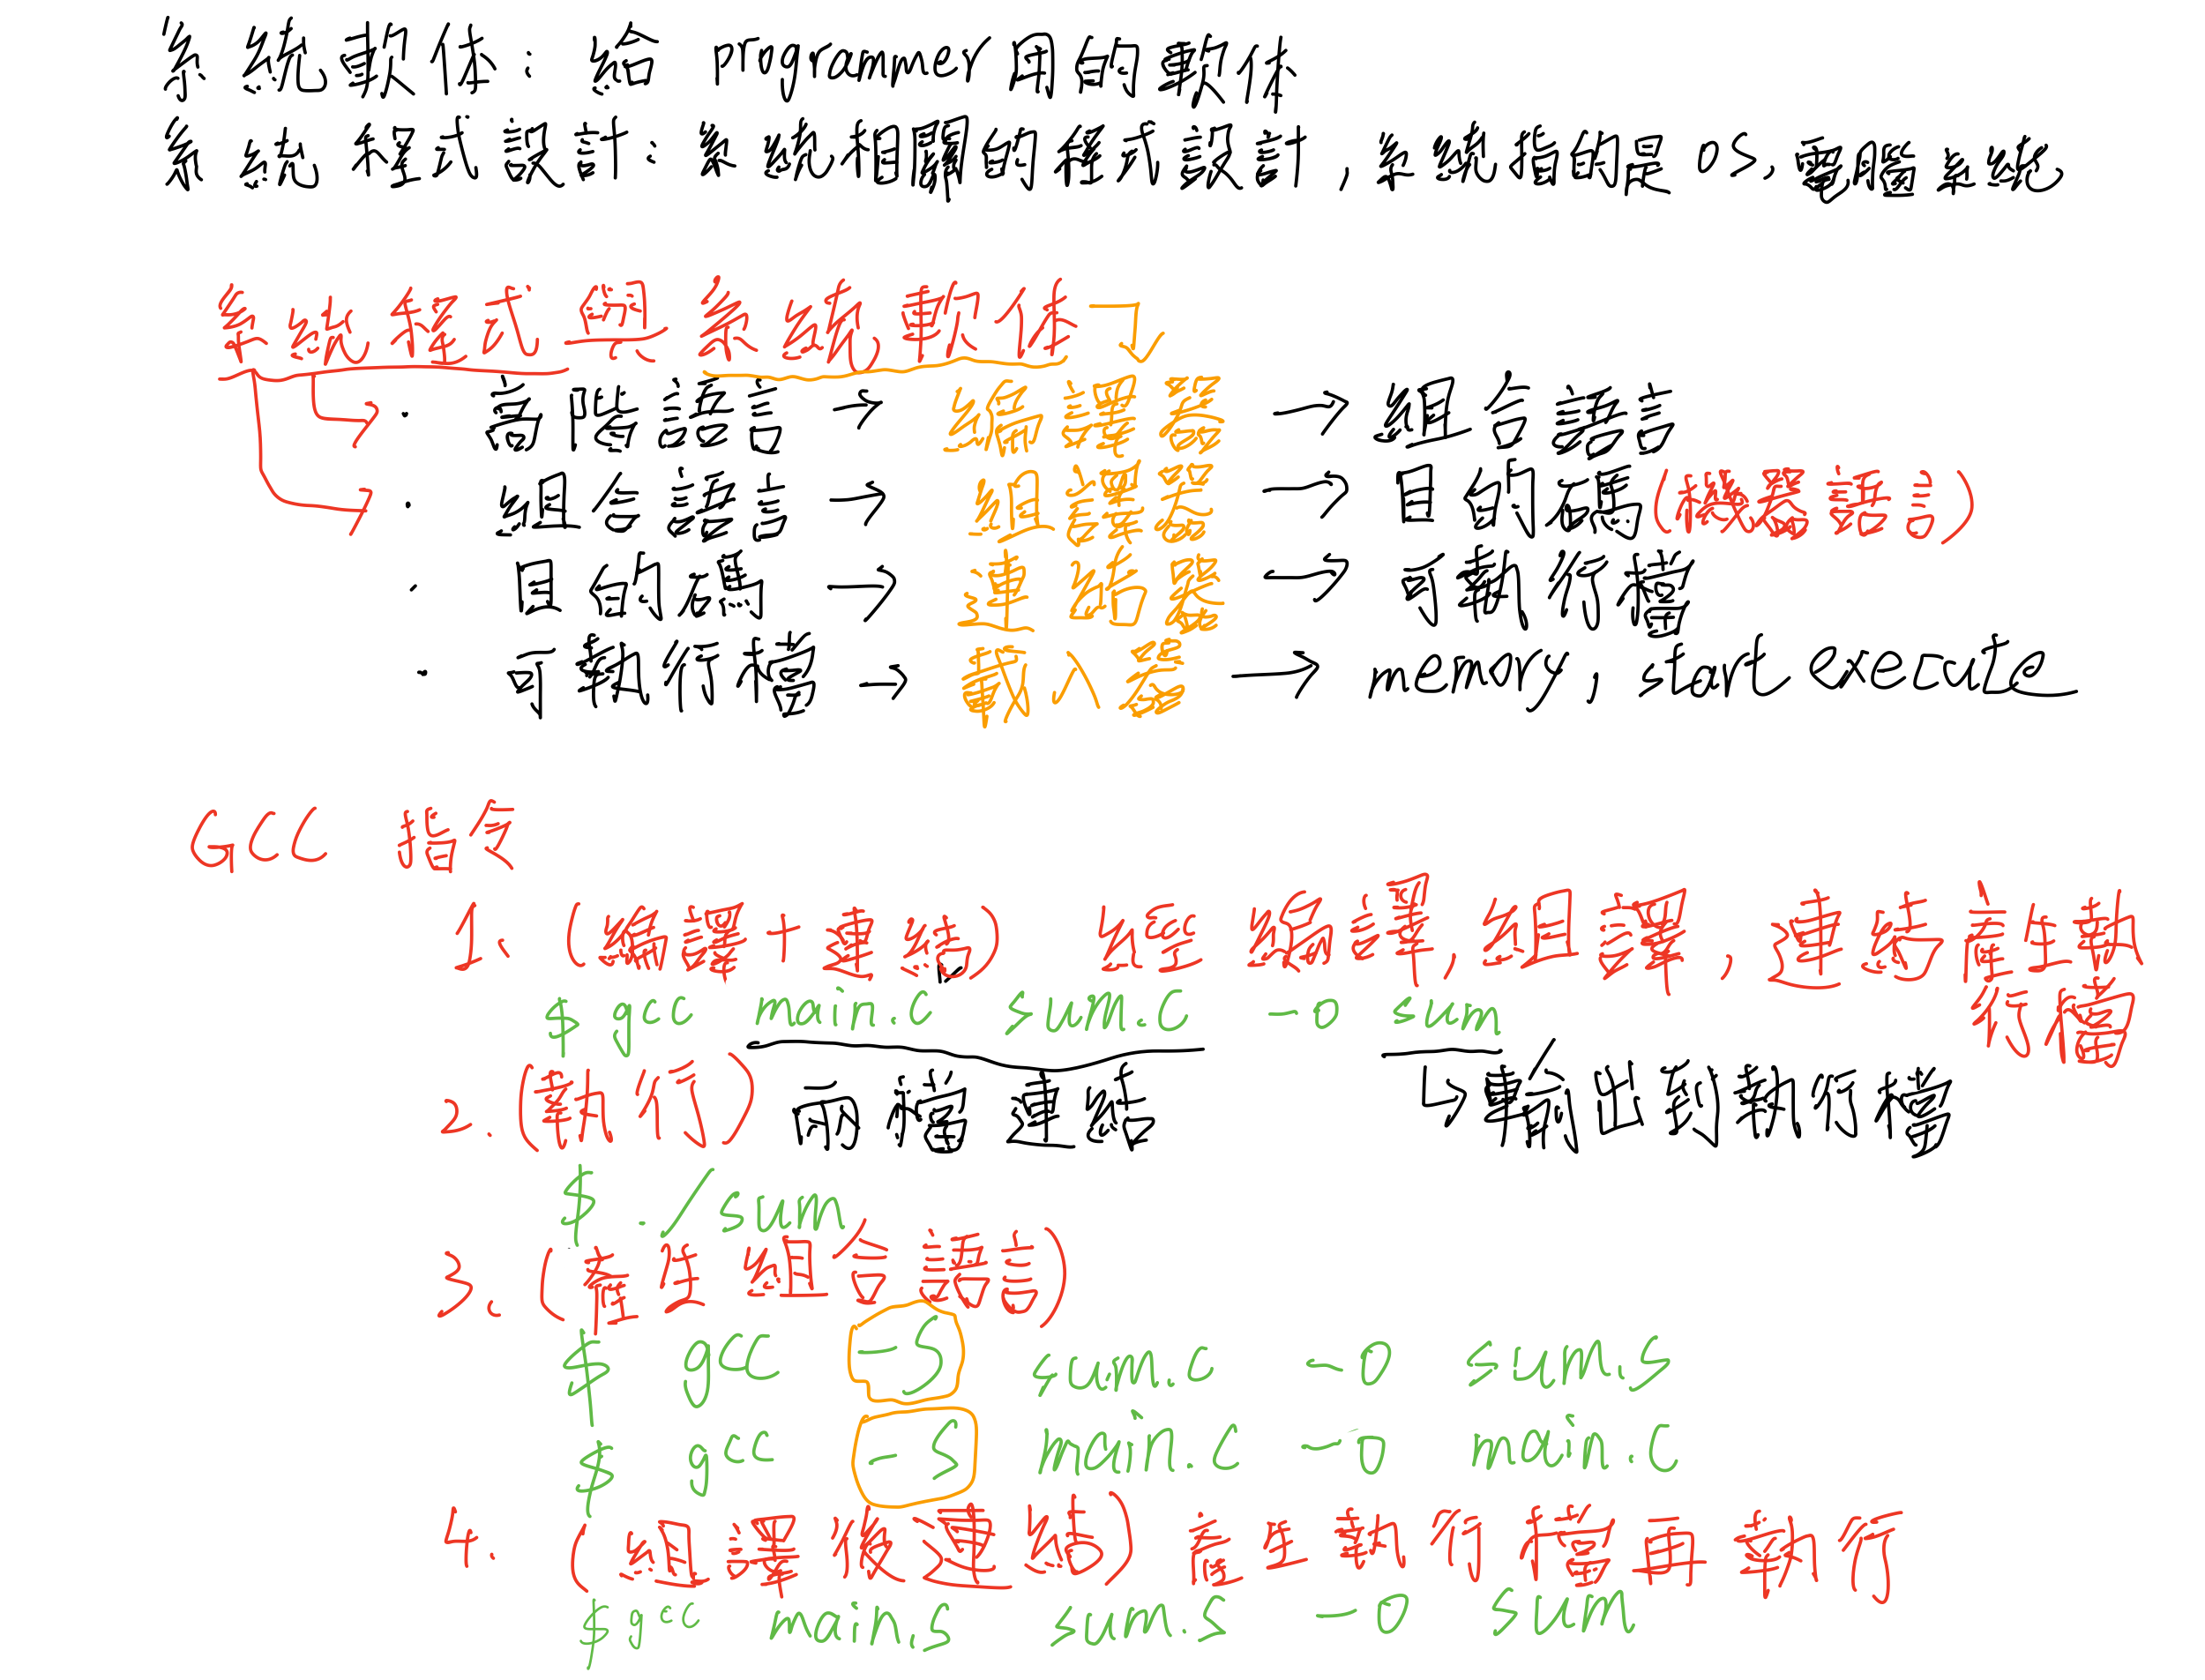 系統軟体：給 programer用的軟体
系統 程式設計：系統相關的程式設計，系統指的是 OS，電腦系統
系統程式與系統軟体
· 高階語言 → 編譯器 → 組合語言
· 組合語言 → 組譯器 → 目的碼(機器語言)
· 目的碼 → 連結器 → 可執行檔
· 可執行檔 → 載入器 → memory, start execute
GCC 指令
1、(編譯＋連結) 經 編譯，組譯，連結產生執
行檔
$ gcc main.c sum.c -o sum
兩檔連結 ↳輸出到執行檔
2. (執行)
$ ./sum
3、(產生組合語言)
$ gcc -S sum.c -o sum.s
$ gcc -S main.c -o main.c
4. (組譯後連結) 產生執行檔再執行
$ gcc main.s sum.s -o sum